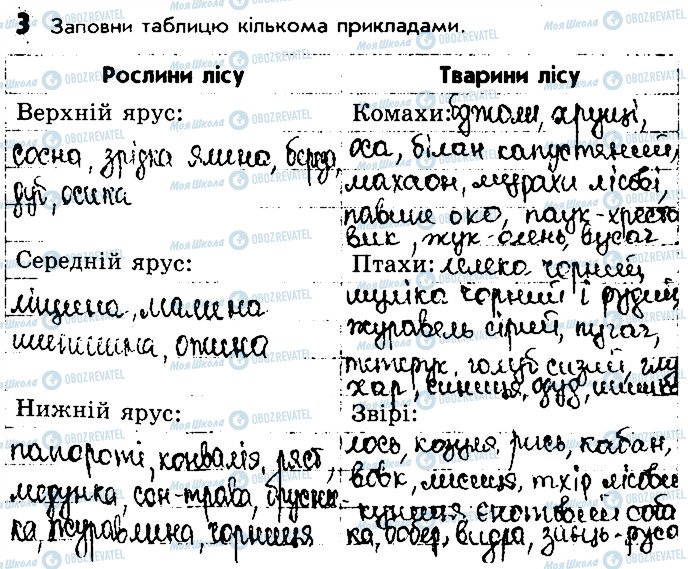 3 Заповни таблицю кількома прикладами.
Рослини лісу
Верхній ярус:
сосна, зрідка ялина, береза,
дуб, осика
Середній ярус:
ліщина, малина
шипшина, ожина
Нижній ярус:
папороті, конвалія, ряст,
медунка, сон-трава, брусни-
ка, журавлина, чорниця
Тварини лісу
Комахи: бджоли, хрущі,
оса, білан капустяний,
махаон, мурахи лісові,
павине око, паук-хресто
вик, жук-олень, вусач
Птахи: лелека чорний,
шуліка чорний і рудий,
журавель сірий, пугач,
тетерук, голуб сизий, глу
хар, синиця, одуд,
Звірі:
лось, козуля, рись, кабан,
вовк, лисиця, тхір лісовий
куниця, єнотвовий соба
ка, бобер, видра, заєць-руса